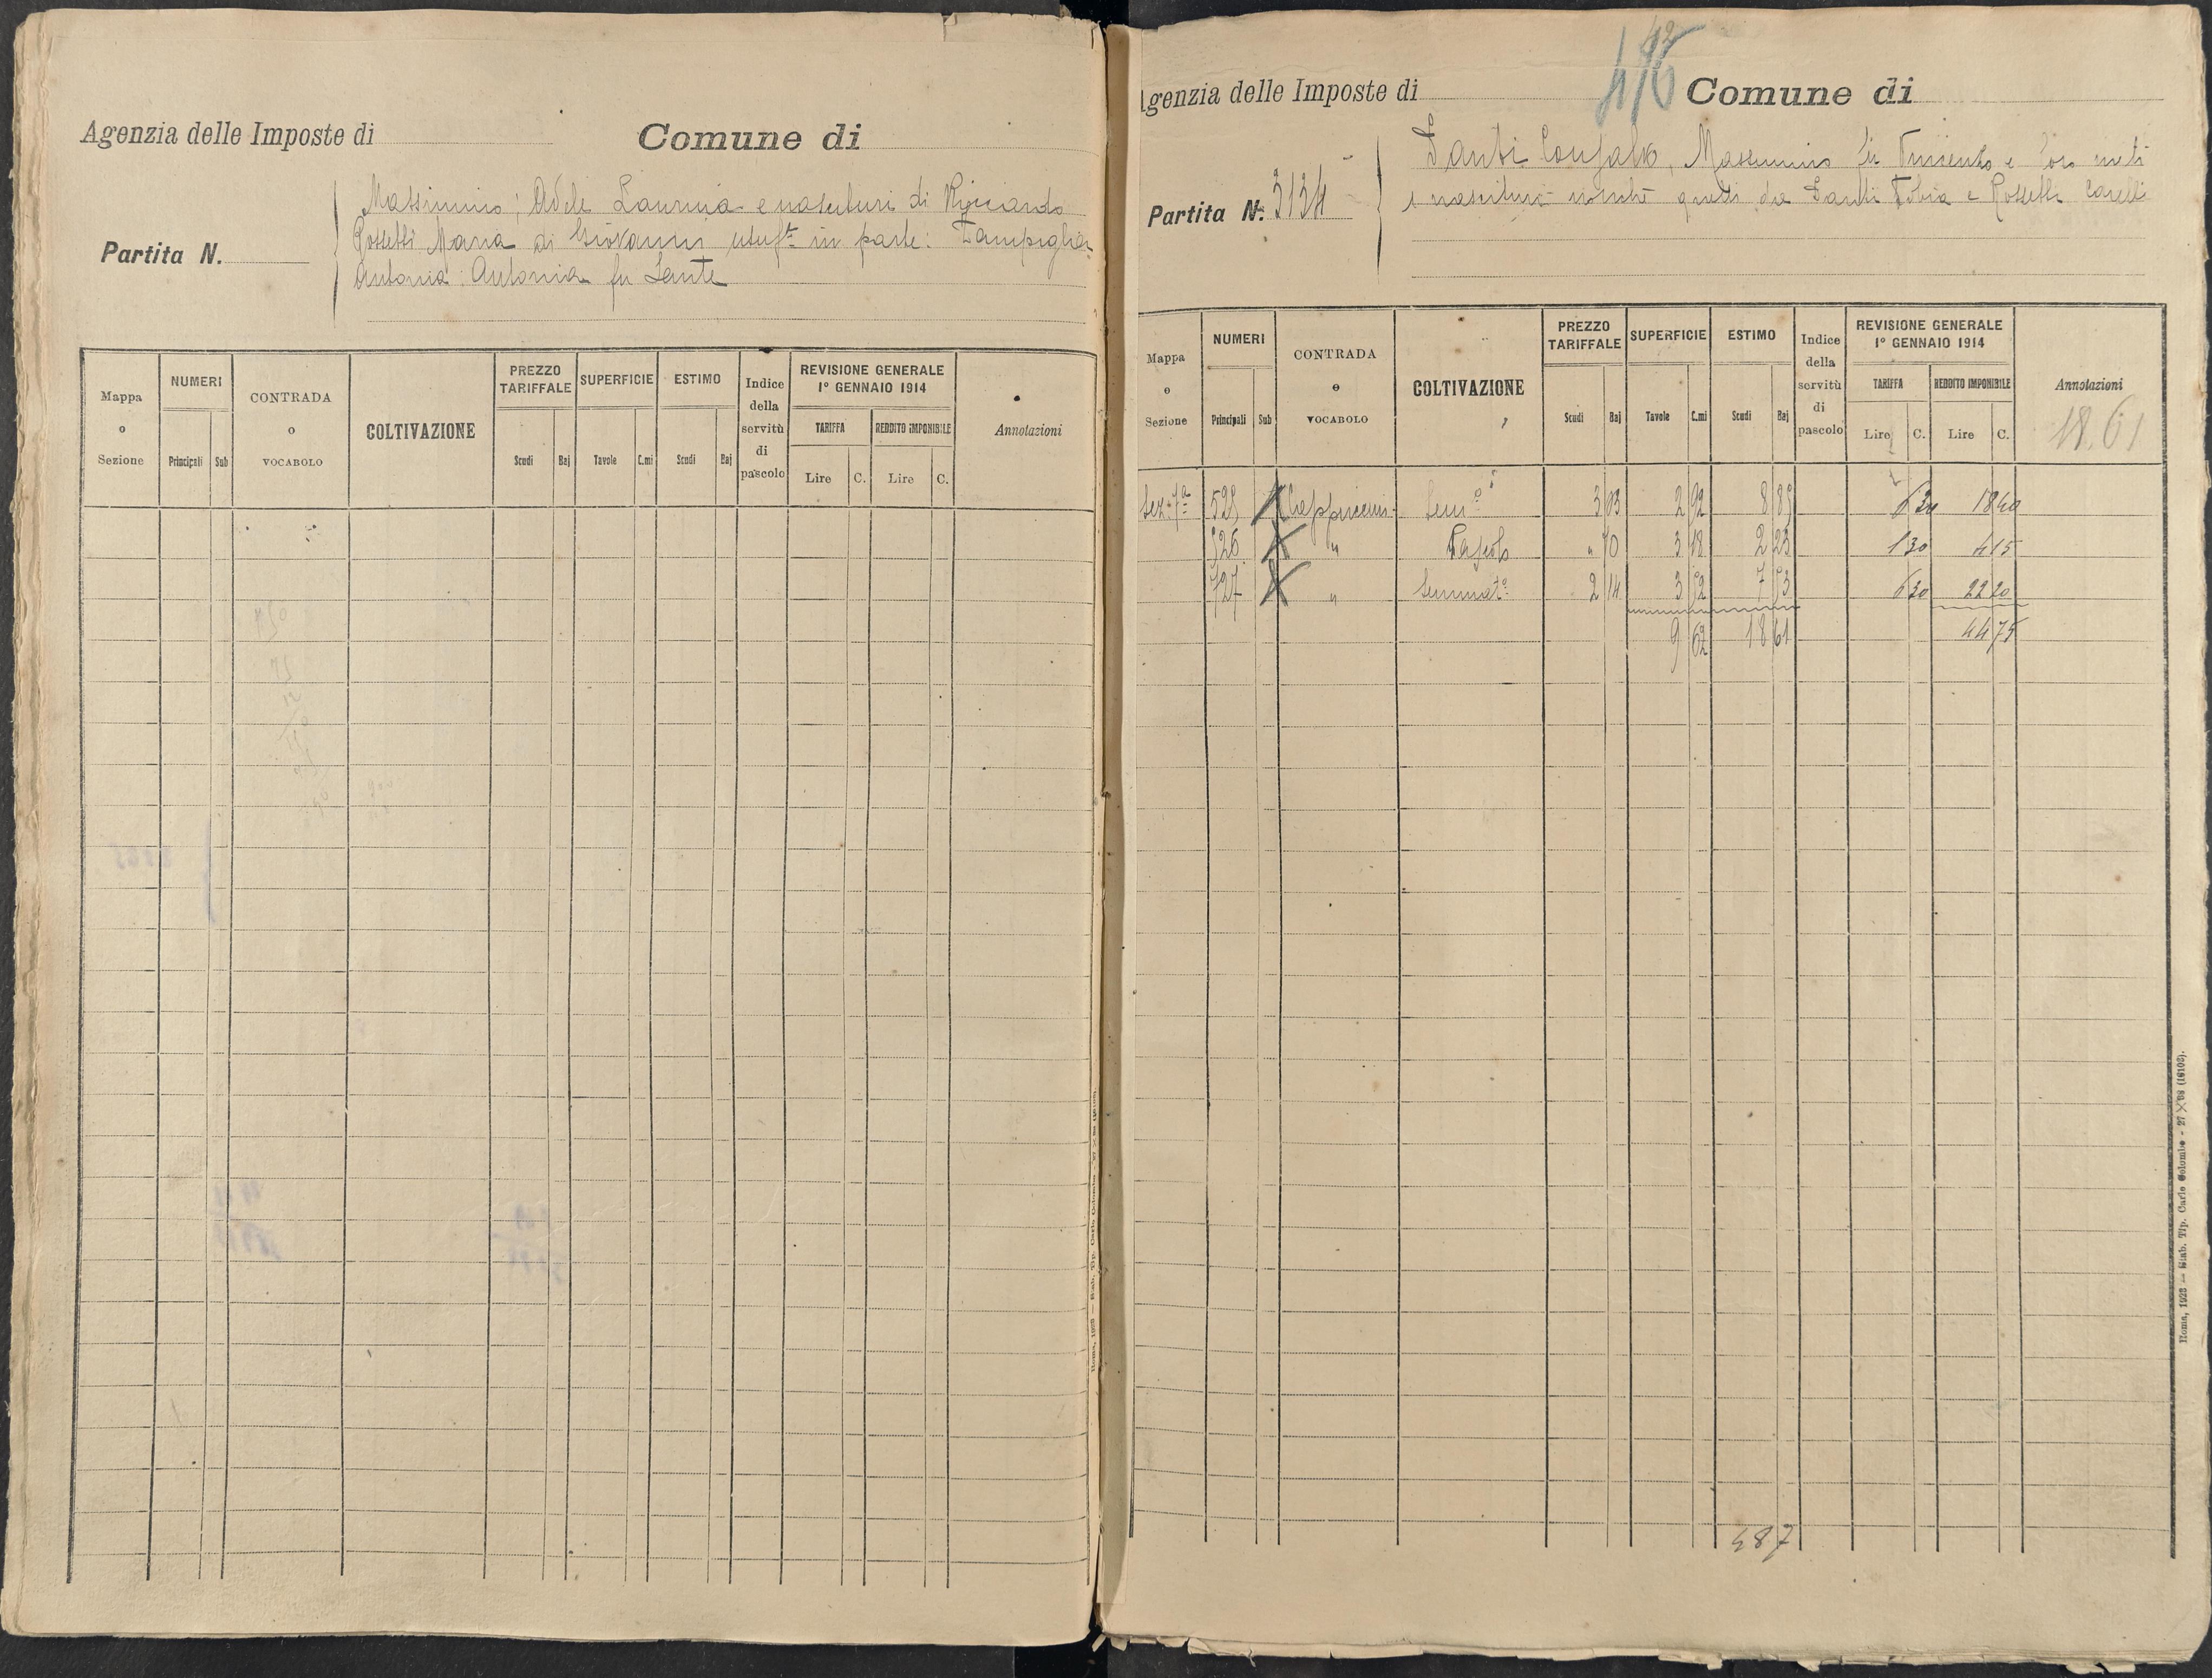 Agenzia delle Imposte di Comune di
Partita N.
Massimino; Adele Laurina e nascituri di Riccardo
Rossetti Maria di Giovanni usuf.ta in parte: Zampiglia
Antonia Antonia fu Sante
Mappa o Sezione
NUMERI
Principali Sub
CONTRADA o VOCABOLO
COLTIVAZIONE
PREZZO TARIFFALE
Scudi Baj
SUPERFICIE
Tavole C.mi
ESTIMO
Scudi Baj
Indice della servitù di pascolo
REVISIONE GENERALE
1° GENNAIO 1914
TARIFFA
Lire C.
REDDITO IMPONIBILE
Lire C.
Annotazioni
42
476
Agenzia delle Imposte di Comune di
Partita N. 3134
Santi Consalvo, Massimino fu Vincenzo e loro nati
e nascituri nonchè quelli da Santi Silvia e Rossetti
Mappa o Sezione
NUMERI
Principali Sub
CONTRADA o VOCABOLO
COLTIVAZIONE
PREZZO TARIFFALE
Scudi Baj
SUPERFICIE
Tavole C.mi
ESTIMO
Scudi Baj
Indice della servitù di pascolo
REVISIONE GENERALE
1° GENNAIO 1914
TARIFFA
Lire C.
REDDITO IMPONIBILE
Lire C.
Annotazioni
18.61
Sez. 7a 525 Cappuccini Sem.o 3 03 2 92 8 85 6 30 18 40
526 " Pascolo " 70 3 18 2 23 1 30 4 15
527 " Seminat.o 2 14 3 52 7 53 6 30 22 20
9 62 18 61 44 75
487
Roma, 1928 — Stab. Tip. Carlo Colombo - 27 X 68 (16103).